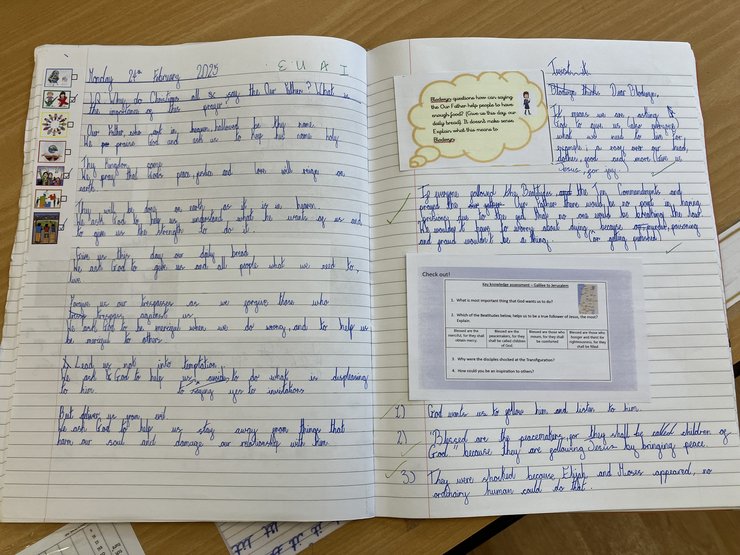 Monday 24th February 2025
E U A I
LO Why do Christians all say the Our Father? What is
the importance of this prayer
Our Father who art in heaven hallowed be thy name
We praise God and ask us to keep his name holy
Thy Kingdom come
We pray that Gods peace, justice and love will reign on
earth.
Thy will be dony on earth as it is in heaven
We ask God to help us understand what he wants of us and
to give us the strength to do it.
Give us this day our daily bread
We ask God to give us and all people what we need to
live
Forgive us our trespasses as we forgive those who
trespass against us
We ask God to be merciful when we do wrong, and to help us
be merciful to others
Lead us not into temptation
We ask God to help us avoid to do what is displeasing
to him to saying yes to invitations
But deliver us from evil
We ask God to help us stay away from things that
harm our soul and damage our relationship with him
Blodwyn questions how can saying
the Our Father help people to have
enough food? (Give us this day our
daily bread) It doesnt make sense
Explain what this means to
Blodwyn.
Blodwyn thinks Dear Blodwyn,
It means we are asking
God to give us
what we need to live for
example, a roof over our head,
clothes, food and more
Jesus, for joy.
If everyone followed the Beatitudes and the Ten Commandments and
prayed the Our Father there would be no point in having
prisons due to the fact that no one would be breaking the law.
We wouldn't have to worry about dying because murder, poisoning
and fraud wouldn't be a thing. (or getting punished)
Check out!
Key knowledge assessment – Galilee to Jerusalem
1. What is most important thing that God wants us to do?
2. Which of the Beatitudes below, helps us to be a true follower of Jesus, the most?
Explain.
Blessed are the merciful, for they shall obtain mercy.
Blessed are the peacemakers, for they shall be called children of God.
Blessed are those who mourn, for they shall be comforted
Blessed are those who hunger and thirst for righteousness, for they shall be filled
3. Why were the disciples shocked at the Transfiguration?
4. How could you be an inspiration to others?
1) God wants us to follow him and listen to him.
2) "Blessed are the peacemakers, for they shall be called children of
God" because they are following Jesus by bringing peace.
3) They were shocked because Elijah and Moses appeared, no
ordinary human could do that.